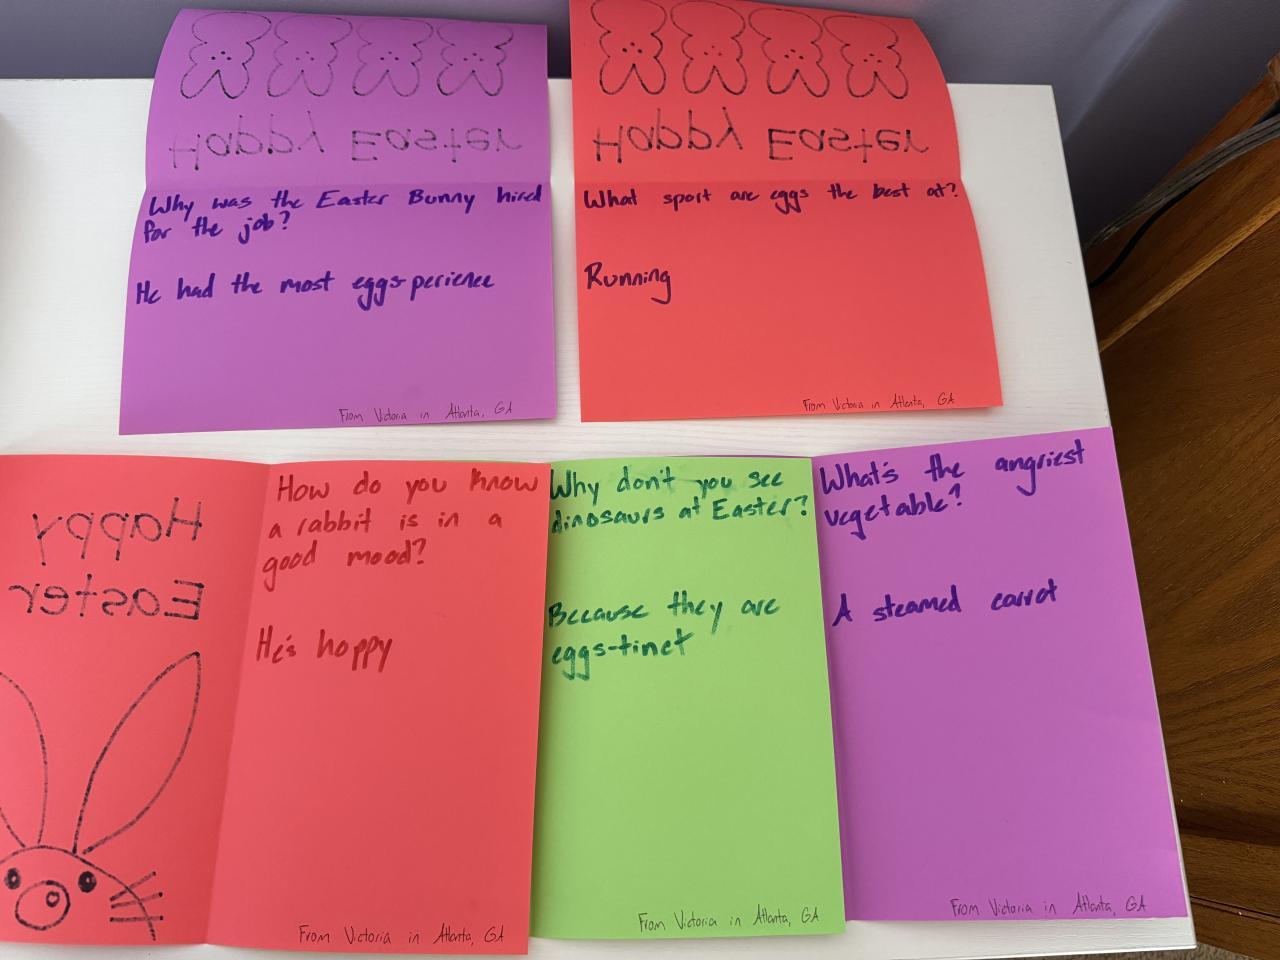 Happy Easter
Why was the Easter Bunny hired
for the job?
He had the most eggs-perience
From Victoria in Atlanta, GA
Happy Easter
What sport are eggs the best at?
Running
From Victoria in Atlanta, GA
Happy
Easter
How do you know
a rabbit is in a
good mood?
He's hoppy
From Victoria in Atlanta, GA
Why don't you see
dinosaurs at Easter?
Because they are
eggs-tinct
From Victoria in Atlanta, GA
What's the angriest
vegetable?
A steamed carrot
From Victoria in Atlanta, GA